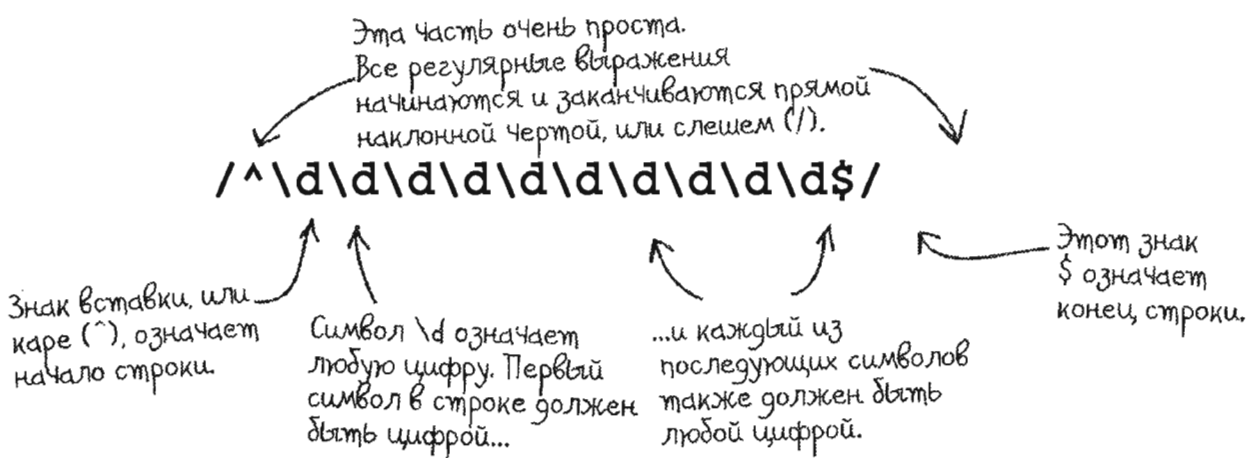 Эта часть очень проста.
Все регулярные выражения
начинаются и заканчиваются прямой
наклонной чертой, или слешем (/).
/^\d\d\d\d\d\d\d\d\d\d$/
Знак вставки, или
каре (^), означает
начало строки.
Символ \d означает
любую цифру. Первый
символ в строке должен
быть цифрой...
...и каждый из
последующих символов
также должен быть
любой цифрой.
Этот знак
$ означает
конец строки.